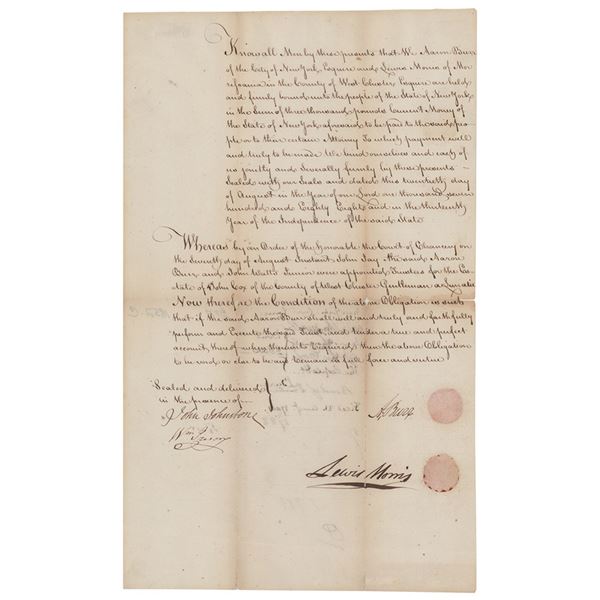 Know all Men by these presents that We Aaron Burr
of the City of New York Esquire and Lewis Morris of Mor
risania in the County of West Chester Esquire are held
and firmly bound unto the people of the State of New York
in the Sum of three thousand pounds Current Money of
the State of New York aforesaid to be paid to the said peo
ple or to their certain Attorney To which payment well
and truly to be made We bind ourselves and each of
us jointly and Severally firmly by these presents —
Sealed with our Seals and dated this twentieth day
of August in the Year of our Lord one thousand seven
hundred and Eighty Eight and in the thirteenth
Year of the Independence of the said State
Whereas by an Order of the Honorable the Court of Chancery on
the Seventh day of August Instant John Jay the said Aaron
Burr and John Watts Junior were appointed Trustees for the Es
tate of John Cox of the County of West Chester Gentleman a Lunatic
Now therefore the Condition of the above Obligation is such
that if the said Aaron Burr shall well and truly and faithfully
perform and Execute the said Trust and render a true and perfect
account thereof when thereunto required, then the above Obligation
to be void or else to be and remain in full force and virtue
Sealed and delivered
in the presence of
John Johnston
Wm
A Burr
Lewis Morris